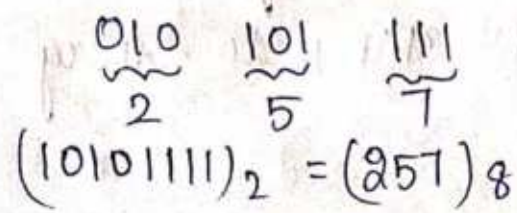 010 101 111
2 5 7
(10101111)₂ = (257)₈